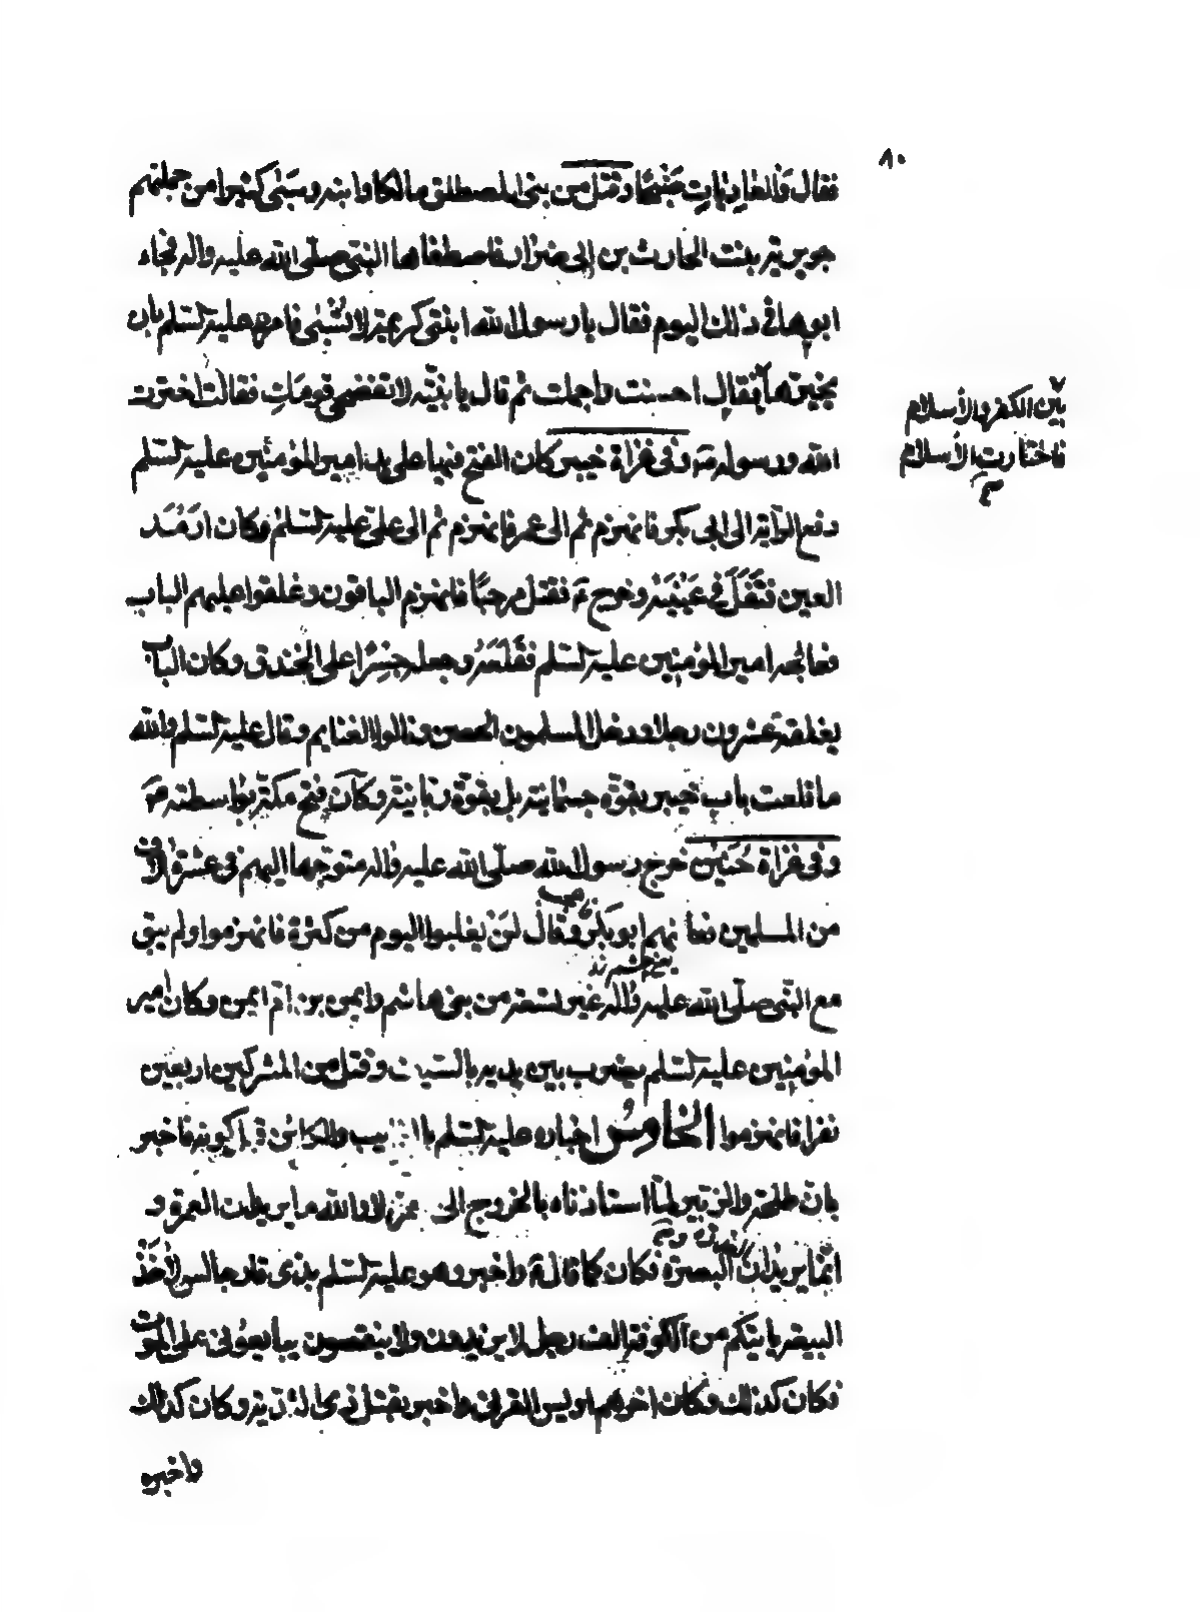 ٨٠
فقال والعاديات ضَبْحًا وقتل من بنى المصطلق مالكا وابنه وسَبٰى كثيرا من جملتهم
جويرية بنت الحارث بن ابى ضرار فاصطفاها النبى صلّى الله عليه واله فجاء
ابوها فى ذلك اليوم فقال يا رسول الله ابنتى كريمة لا تُسْبٰى فامره عليه السّلم بان
يخيرها فقال احسنت واجملت ثم قال يا بنيّة لا تفضحى قومكِ فقالت اخترت
بين الكفر والأسلام
فاختارت الأسلام
الله ورسوله وفى غزاة خيبر كان الفتح فيها على يد امير المؤمنين عليه السّلم
دفع الرّاية الى ابى بكر فانهزم ثم الى عمر فانهزم ثم الى علىّ عليه السّلم وكان ارمَد
العين فتَفَلَ فى عَيْنِه وخرج فقتل مرحبًا فانهزم الباقون وغلقوا عليهم الباب
فعالجه امير المؤمنين عليه السّلم فقَلَعَهُ وجعله جِسْرًا على الخندق وكان الباب
يغلقه عشرون رجلا ودخل المسلمون الحصن ونالوا الغنايم وقال عليه السّلم والله
ما قلعت باب خيبر بقوّة جسمانية بل بقوّة ربانية وكان فتح مكّة بواسطته
وفى غزاة حُنَيْن خرج رسول الله صلّى الله عليه واله متوجّها اليهم فى عشرة الاف
من المسلمين فعانهم ابو بكر وقال لَنْ يغلبوا اليوم من كثرة فانهزموا ولم يبق
مع النّبى صلّى الله عليه واله غير تسعة من بنى هاشم وايمن بن امّ ايمن وكان امير
المؤمنين عليه السّلم يضرب بين يديه بالسّيف وقتل من المشركين اربعين
نفرا فانهزموا الخامِسُ اخباره عليه السّلم بالغيب والكائن قبل كونه فاخبر
بان طلحة والزبير لمّا استاذناه بالخروج الى العمرة لا والله ما يريدان العمرة و
انّما يريدان البصرة وكان كما قال واخبر وهو عليه السّلم بذى قار جالس لأخذ
البيعة ياتيكم من الكوفة الف رجل لا يزيدون ولا ينقصون يبايعونى على الموت
فكان كذلك وكان اخرهم اويس القرنى واخبر بقتل ذى الثدية وكان كذلك
واخبره